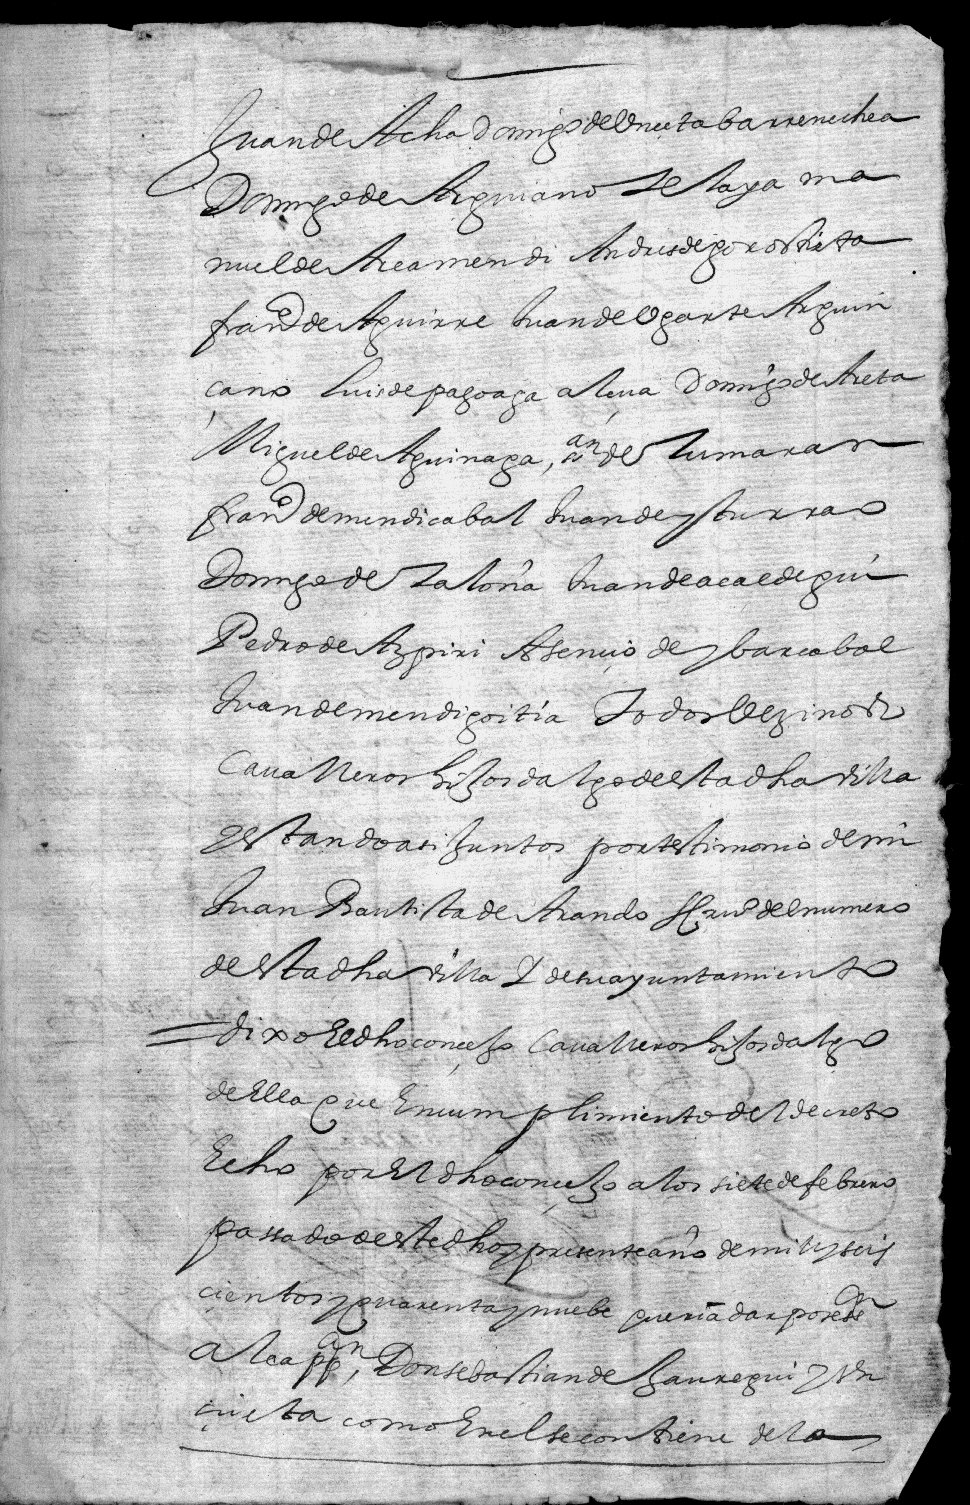 Juan de Acha Domingo de Unçeta barrenechea
Domingo de Arguiano Zelaya ma
nuel de Areamendi Andres de gorostieta
franco de Aguirre Juan de Ugarte Arguin
çano Luis de pagoaga alçua Domingo de Areta
Miguel de Aguinaga, an de Zumaran
franco de mendicabal Juan de yturrao
Domingo de Zaloña Juan de acaedegui
Pedro de Azpiri Asençio de ybarçabal
Juan de mendigoitia Todos Vezinos
Caualleros hijos dalgo desta dha villa
estando asi Juntos por testimonio de mi
Juan Bautista de Arando Scriuo del numero
desta dha villa Y de su ayuntamiento
= dixo El dho conçejo Caualleros hijos dalgo
de Ella que En cumplimiento del decreto
Echo por El dho conçejo a los siete de febrero
passado deste dho y presente año de mill y seis
çientos y quarenta y nuebe queria dar poseson
al cappan, Don sebastian de Jauregui y Un
çueta como En el se contiene de la